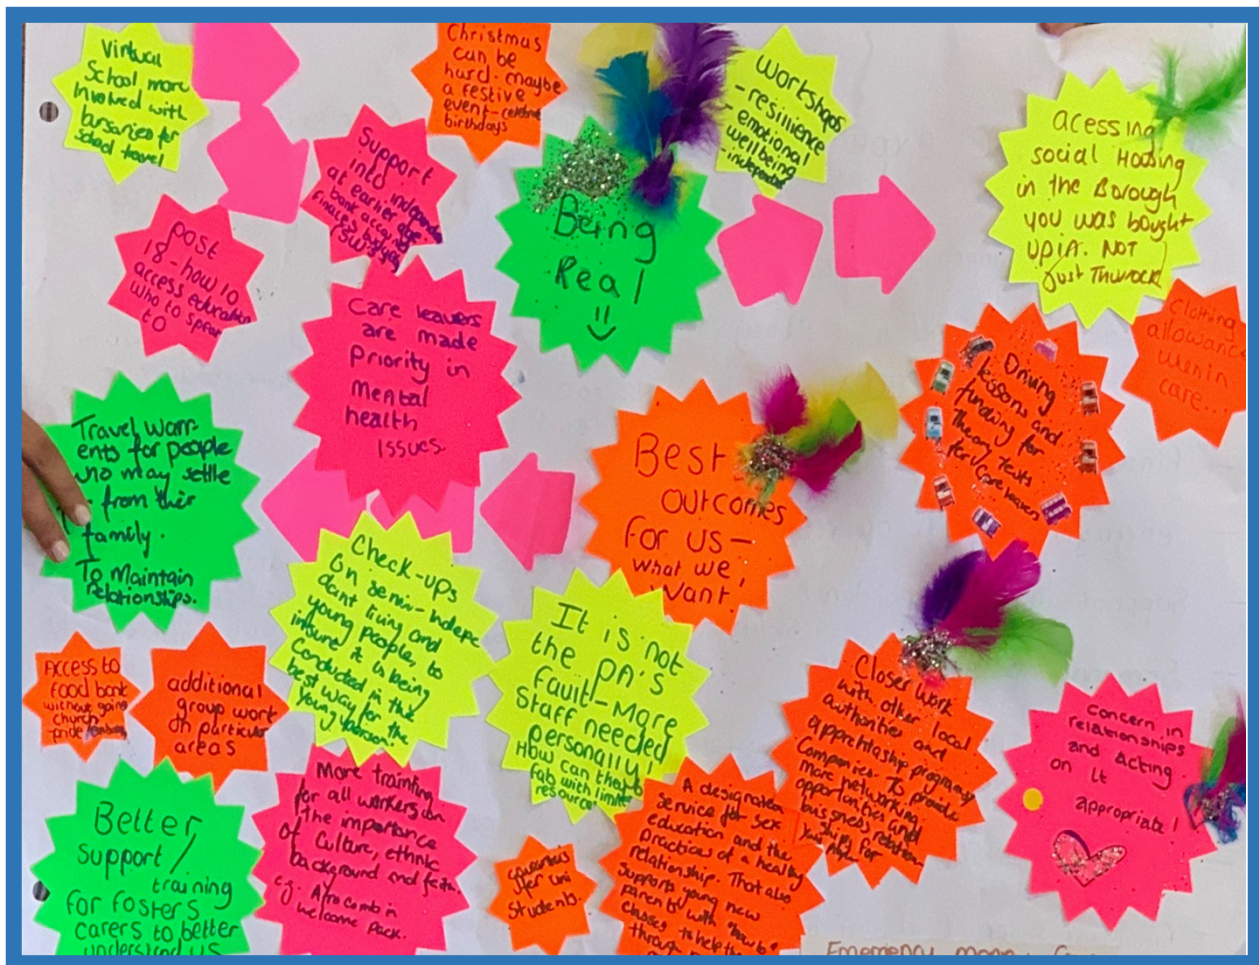 Virtual
School more
Involved with
bursaries for
school travel
Christmas
can be
hard- maybe
a festive
event- celebrate
birthdays
Workshops
- resillience
- emotional
wellbeing
- independent
acessing
social Housing
in the Borough
you was bought
up in. NOT
just Thurrock
Support
into independent
at earlier age
bank account
finances
Being
Real
post
18 - how to
access education
who to speak
to
Care leavers
are made
Priority in
Mental
health
Issues.
Clothing
allowance
when in
care...
Driving
lessons and
funding for
Theory tests
for Care leavers
Travel warr-
ents for people
who may settle
from their
family.
To Maintain
relationships.
Best
outcomes
for us -
what we,
want
Check-ups
On semi-indepe
dant living and
young people, to
insure it is being
conducted in the
best way for the
young person.
It is not
the PA's
fault - More
staff needed
personally!
How can they b
fab with limited
resource
Access to
food bank
without going
church
- pride
additional
group work
on particular
areas
Closer work
with other local
authorities and
apprentiship programs
Companies. To provide
more networking
opportunities and
business relation-
ships for
Concern in
relationships
and acting
on it
appropriate!
Better
Support /
training
for fosters
carers to better
understand us
More training
for all workers on
the importance
of Culture, ethnic
background and faith.
eg. Afro comb in
welcome pack.
for uni
students.
A designated
service for sex
education and the
practices of a healthy
relationship. That also
supports young new
parents with "how to"
classes to help them
through
Emergency